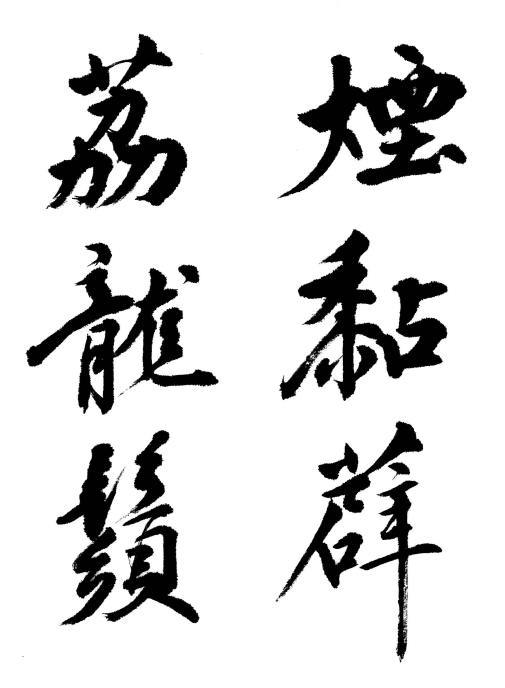 煙黏薜
荔龍鬚